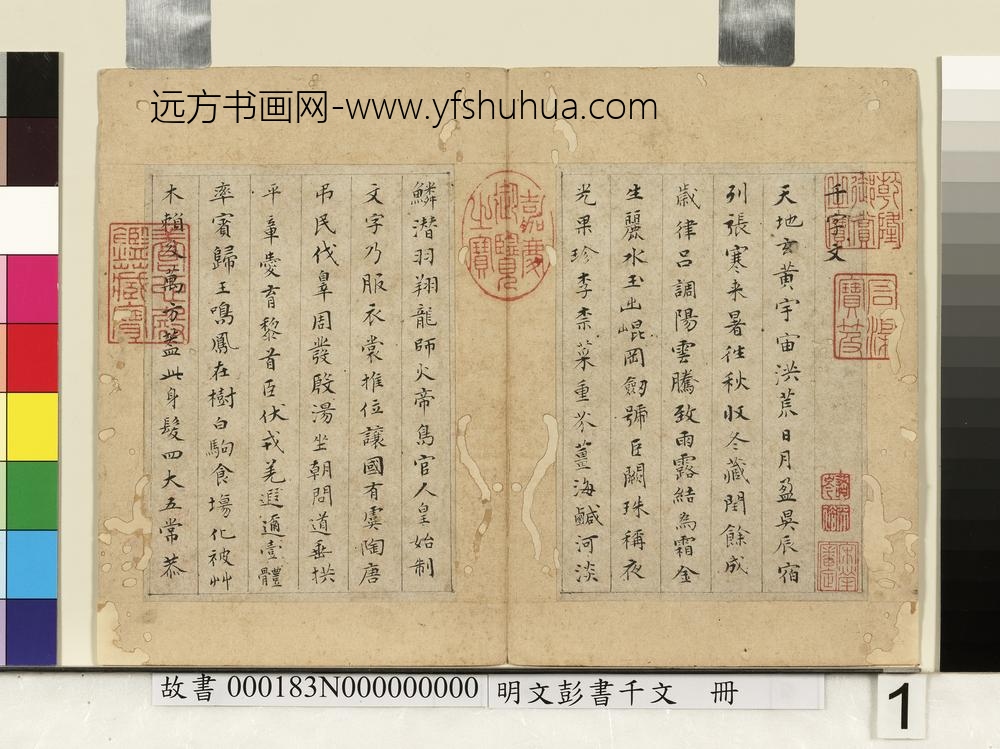 远方书画网-www.yfshuhua.com
千字文
天地玄黄宇宙洪荒日月盈昃辰宿
列張寒来暑往秋収冬藏閏餘成
歲律呂調陽雲騰致雨露結為霜金
生麗水玉出崐岡劒號巨闕珠稱夜
光果珍李柰菜重芥薑海鹹河淡
鱗潜羽翔龍師火帝鳥官人皇始制
文字乃服衣裳推位讓國有虞陶唐
吊民伐辠周發殷湯坐朝問道垂拱
平章愛育黎首臣伏戎羌遐邇壹體
率賓歸王鳴鳳在樹白駒食場化被艸
木賴及萬方蓋此身髮四大五常恭
乾隆御賞之寶
石渠寶笈
嘉慶御覽之寶
故書 000183N000000000 明文彭書千文 冊
1